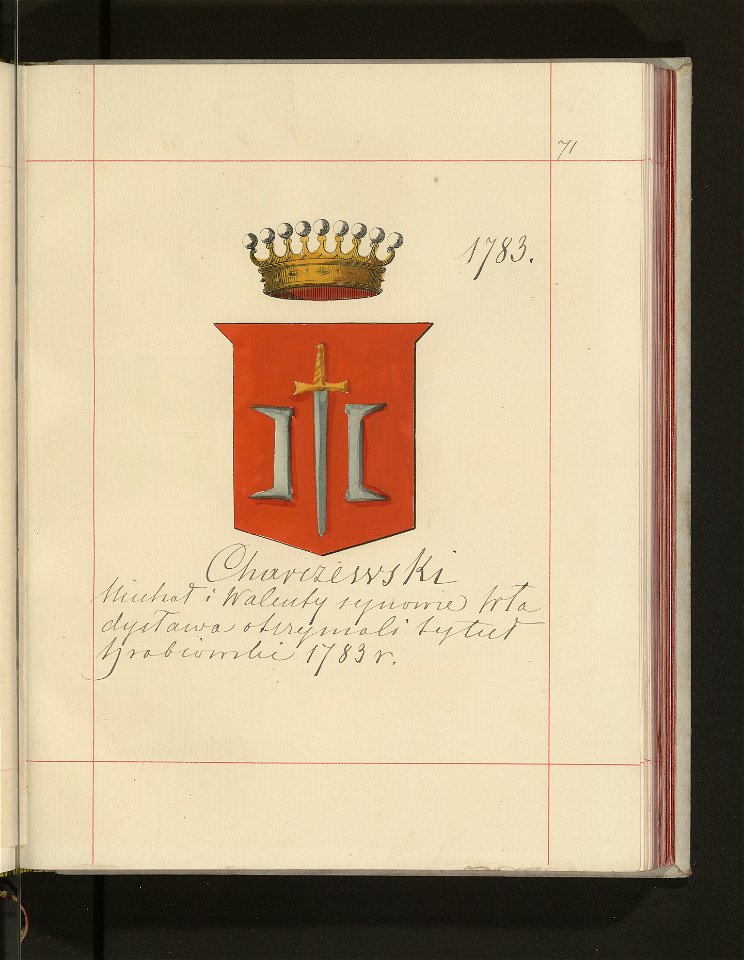 71
1783.
Charczewski
Michał i Walenty synowie Wła
dysława otrzymali tytuł
hrabiowski 1783 r.